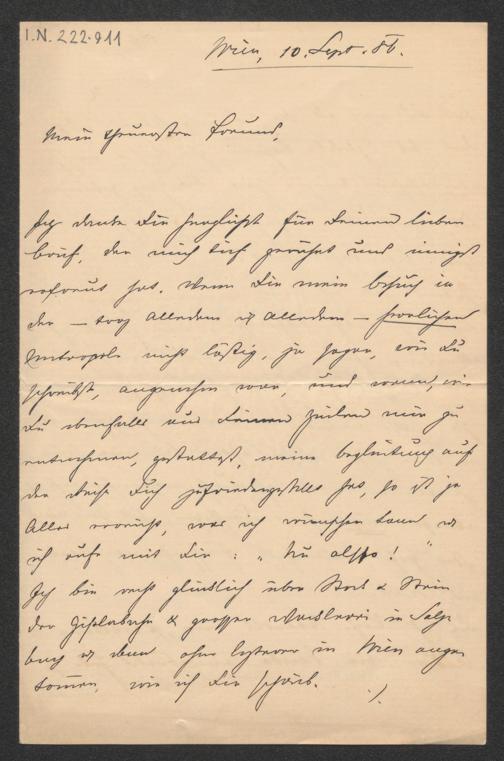 I.N. 222.911
Wien, 10. Sept. 86.
Mein theuerster Freund,
Ich danke Dir herzlichst für Deinen lieben
Brief, der mich tief gerührt und innigst
erfreut hat. Wenn Dir mein Besuch in
der — trotz alledem & alledem — herrlichen
Metropole nicht lästig, ja sogar, wie Du
schreibst, angenehm war, und wenn, wie
Du ebenfalls aus Deinen Zeilen mir zu
entnehmen, gestattest, meine Begleitung auf
der Reise Dich zufriedengestellt hat, so ist ja
Alles erreicht, was ich wünschen kann &
ich rufe mit Dir: „Nu also!"
Ich bin recht glücklich über Stock & Stein
der Giselabahn & grosser in Salz
burg & dann ohne letzterer in Wien ange
kommen, wie ich Dir schrieb. ./.